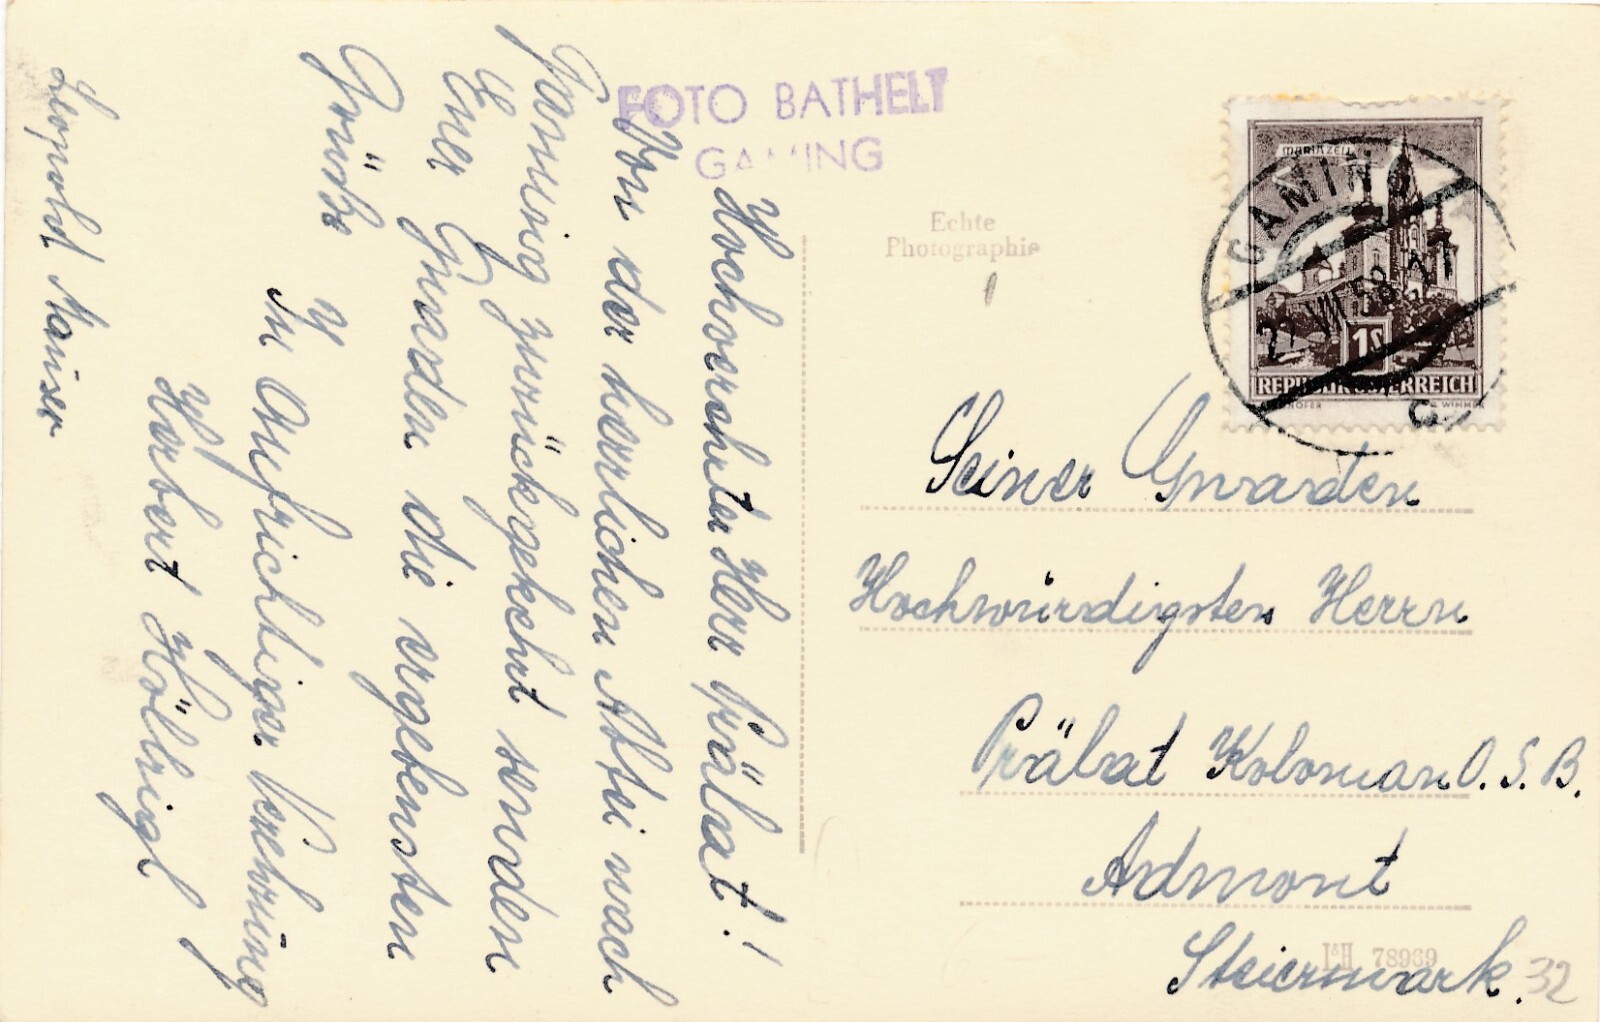 FOTO BATHELT
GAMING
Echte
Photographie
MARIAZELL
1S
REPUBLIK ÖSTERREICH
WIMMER
GAMING
Hochverehrter Herr Prälat!
Von der herrlichen Abtei nach
Gaming zurückgekehrt senden
Euer Gnaden die ergebensten
Grüße
In Aufrichtiger Verehrung
Herbert Hölrigl
Leopold Mauser
Seiner Gnaden
Hochwürdigsten Herrn
Prälat Koloman O.S.B.
Admont
Steiermark.
I&H 78969
32